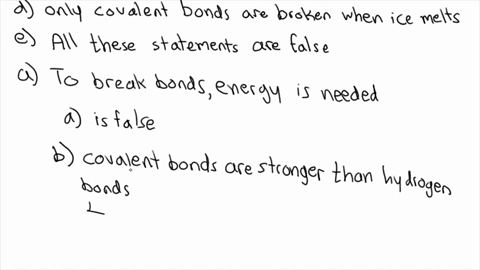 d) only covalent bonds are broken when ice melts
e) All these statements are false
a) To break bonds, energy is needed
a) is false
b) covalent bonds are stronger than hydrogen
bonds